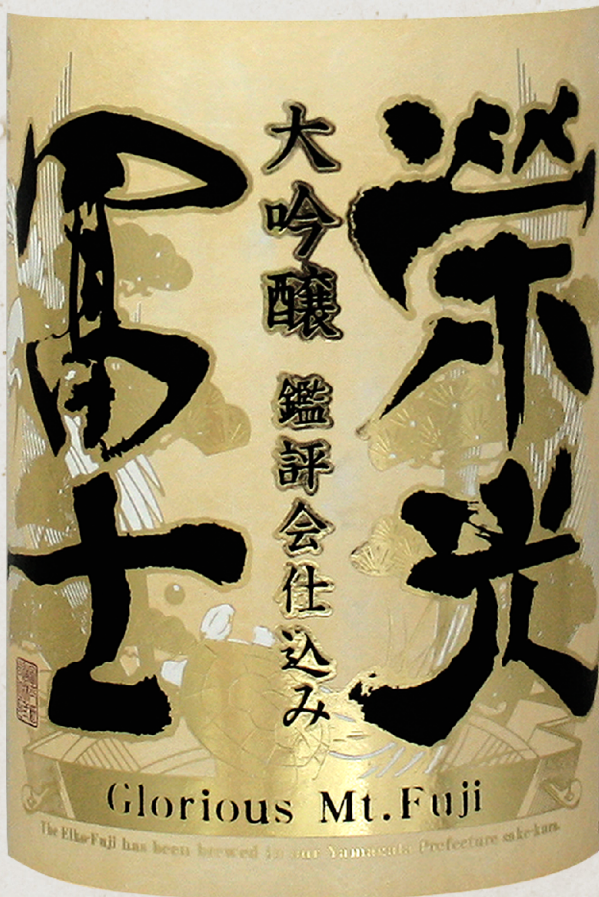 栄光
冨士
大吟醸 鑑評会仕込み
Glorious Mt.Fuji
The Eiko-Fuji has been brewed in our Yamagata Prefecture sake-kura.